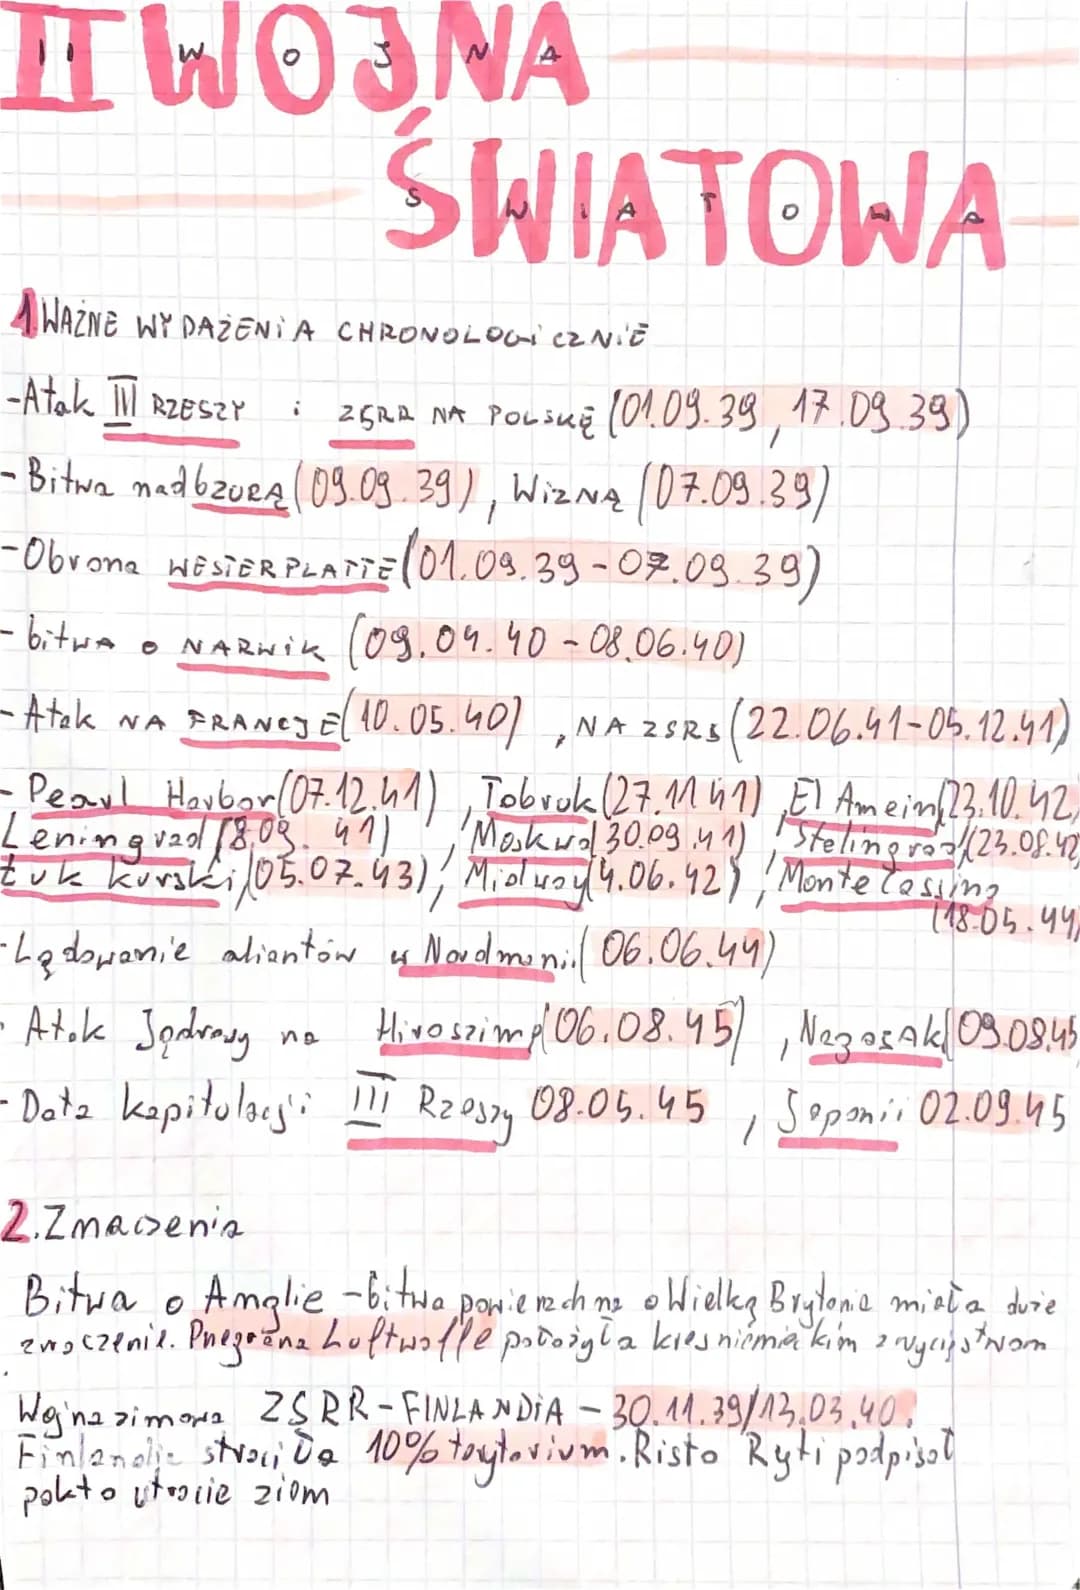 II WOJNA
ŚWIATOWA
1 WAŻNE WYDAŻENIA CHRONOLOGICZNIE
-Atak III RZESZY i ZSRR NA POLSKĘ (01.09.39, 17.09.39)
-Bitwa nad bzurą (09.09.39), Wizną (07.09.39)
-Obrona WESTERPLATTE (01.09.39-07.09.39)
-bitwa o NARWIK (09.04.40-08.06.40)
-Atak NA FRANCJE (10.05.40), NA ZSRS (22.06.41-05.12.41)
-Pearl Harbor (07.12.41), Tobruk (27.11.41), El Amein (23.10.42)
Leningrad (8.09.41), Moskwa (30.09.41), Stelingrad (23.08.42)
Łuk kurski (05.07.43), Midway (4.06.42), Monte Cassino
(18.05.44)
-Lądowanie aliantów w Nordmanii (06.06.44)
-Atak Jądrowy na Hiroszimę (06.08.45), Nagasaki (09.08.45
-Data kapitulacji III Rzeszy 08.05.45, Japonii 02.09.45
2. Znaczenia
Bitwa o Anglie - bitwa powierzchna o Wielką Brytonie miała duże
znaczenie. Przegrana Luftwaffe położyła kres niemieckim zwycięstwom
Wojna zimowa ZSRR-FINLANDIA - 30.11.39/13.03.40.
Finlandia straciła 10% terytorium. Risto Ryti podpisał
pakt o utracie ziem